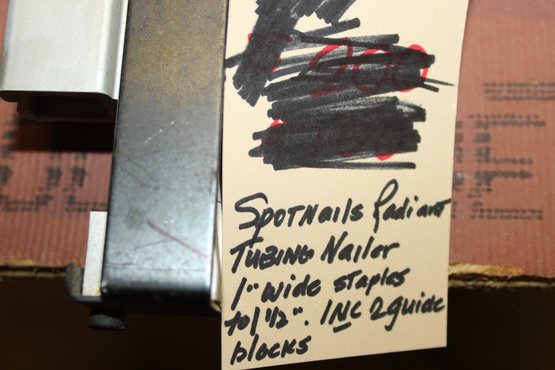 200
SPOTNails Radiant
TUBING Nailer
1" wide staples
to 1 1/2". INC 2 guide
blocks